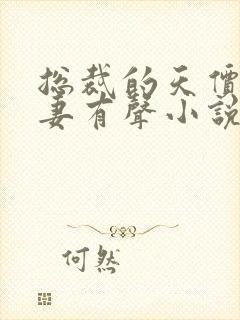 总裁的天價
妻有聲小說
何然